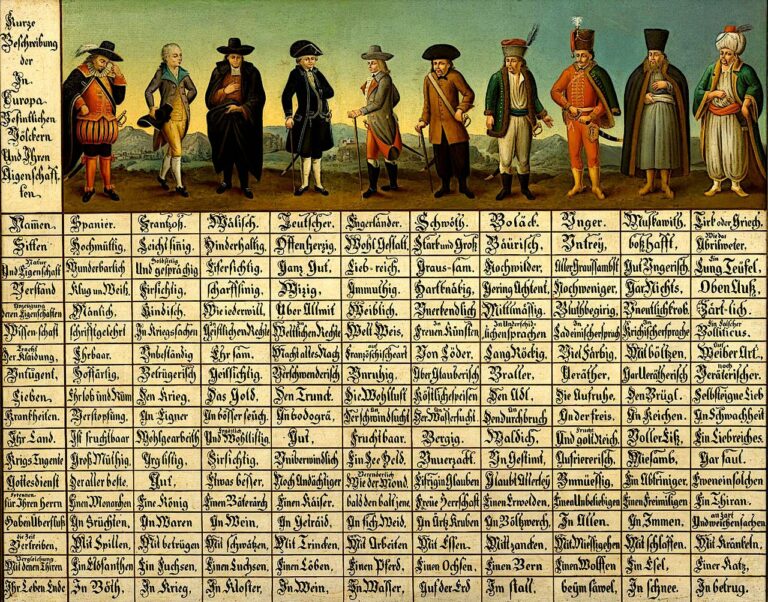 Kurze
Beschreibung
der
In
Europa
Befintlichen
Völckern
Und Ihren
Aigenschaff-
ten.
Namen. Spanier. Frantzoß. Wälisch. Teutscher. Engerländer. Schwöth. Boläck. Unger. Muskawith. Tirk oder Griech.
Sitten Hochmüttig, Leichtsinig, Hinderhaltig, Offenherzig, Wohl Gestalt, Starck und Groß Bäurisch, Untrey, boßhafft, Wie das Abrilweter.
Natur Und Eigenschaft Wunderbarlich Holdseelig Und gesprächig Eifersichtig, Ganz Gut, Lieb-reich, Graus-sam, Hochwilder, Aller Graussambst, Gut Ungerisch, Ein Lung Teüfel,
Verstand Klug un Weiß, Firsichtig, scharffsinig, Wizig, Anmuthig, Hartknätig, Gering Achtent, Nochweniger, Gar Nichts, Oben Auß,
Anzeigung deren Eigenschaften Mänlich, Kindisch, Wie iederwill, Über Allmit Weiblich, Unerkendlich Mittlmäsig, Bluthbegirig, Unentlichkrob, Zärt-lich.
Wissenschaft schriftgelehrt In Kriegssachen Geistlichen Rechte Weltlichen Rechte Welt Weis, In Freuen Künsten In Underschidlichen sprachen In Ladeinischer sprach In Krichischer sprache In Falscher Politicus.
Tracht Der Klaidung, Ehrbaar, Unbeständig Ehrsam, Macht alles Nach auf Französischeart Von Löder, Lang Röckig, Viel Färbig, Mit böltzen, Auf Weiber Art,
Untugent, Hoffärtig, Betrügerisch Geilsichtig, Verschwenderisch Unruhig, Über Glauberisch Braller, Veräther, Gar Verätherisch noch Veräterischer,
Lieben, Ehrlob und Rüm Den Krieg, Das Gold, Den Trunck, Die Wohllust Köstlichespeisen Den Adl, Die Aufruhe, Den Brügl, Selbsteigne Lieb
Krankheiten, Verstopfung, An Eigner An bösser seüch, An bodogrä, An Der schwindsucht An Der Wassersucht, An Den durchbruch An der freis, An Keichen, An Schwachheit
Ihr Land, Ist fruchtbaar Wohlgearbeith Ergözlich Und Wohllistig Gut, Fruchtbaar, Bergig, Waldich, Frucht Und gold Reich, Voller Eiß, Ein Liebreiches.
Krigs Tugente Groß Müthig, Arglistig, Firsichtig, Unüberwindlich Ein See Held, Unverzackt, Un Gestimt, Aufriererisch, Miesamb, Gar faul.
Gottesdienst Der aller beste. Gut, Etwas besser, Noch Andächtiger Veränderlich Wie der Mond, Eifrig in Glauben Glaubt Allerley Unmüessig, Ein Abtriniger, Eweneinsolchen
Erkennen für Ihren Herrn Einen Monarchen Eine König Einen Bäterärch Einen Kaiser, bald den balt jene Freüe Herrschaft Einen Erwelden, Einen Unbeliebigen Einen Freimilligen Ein Thiran,
Haben Überfluß An Früchten, An Waren An Wein, An Getraid, An fich Weid, An Ärtz Kruben An Böltzwerch, In Allen, An Immen, An Zart Und weichen sachen
die Zeit Vertreiben, Mit Spillen, Mit betrügen Mit schwätzen, Mit Trincken, Mit Arbeiten Mit Essen, Mit zancken, Mit Miessigehen Mit schlaffen, Mit Kränkeln,
Vergleichung Mit denen Thiren Ein Elöfanthen Ein Fuchsen, Einen Luchsen, Einen Löben, Einen Pferd, Einen Ochsen, Einen Bern Einen Wolffen Ein Esel, Einer Katz,
Ihr Leben Ende In Böth, In Krieg, In Kloster, In Wein, In Wasser, Auf der Erd Im stall, beym säwel, In schnee, In betrug.